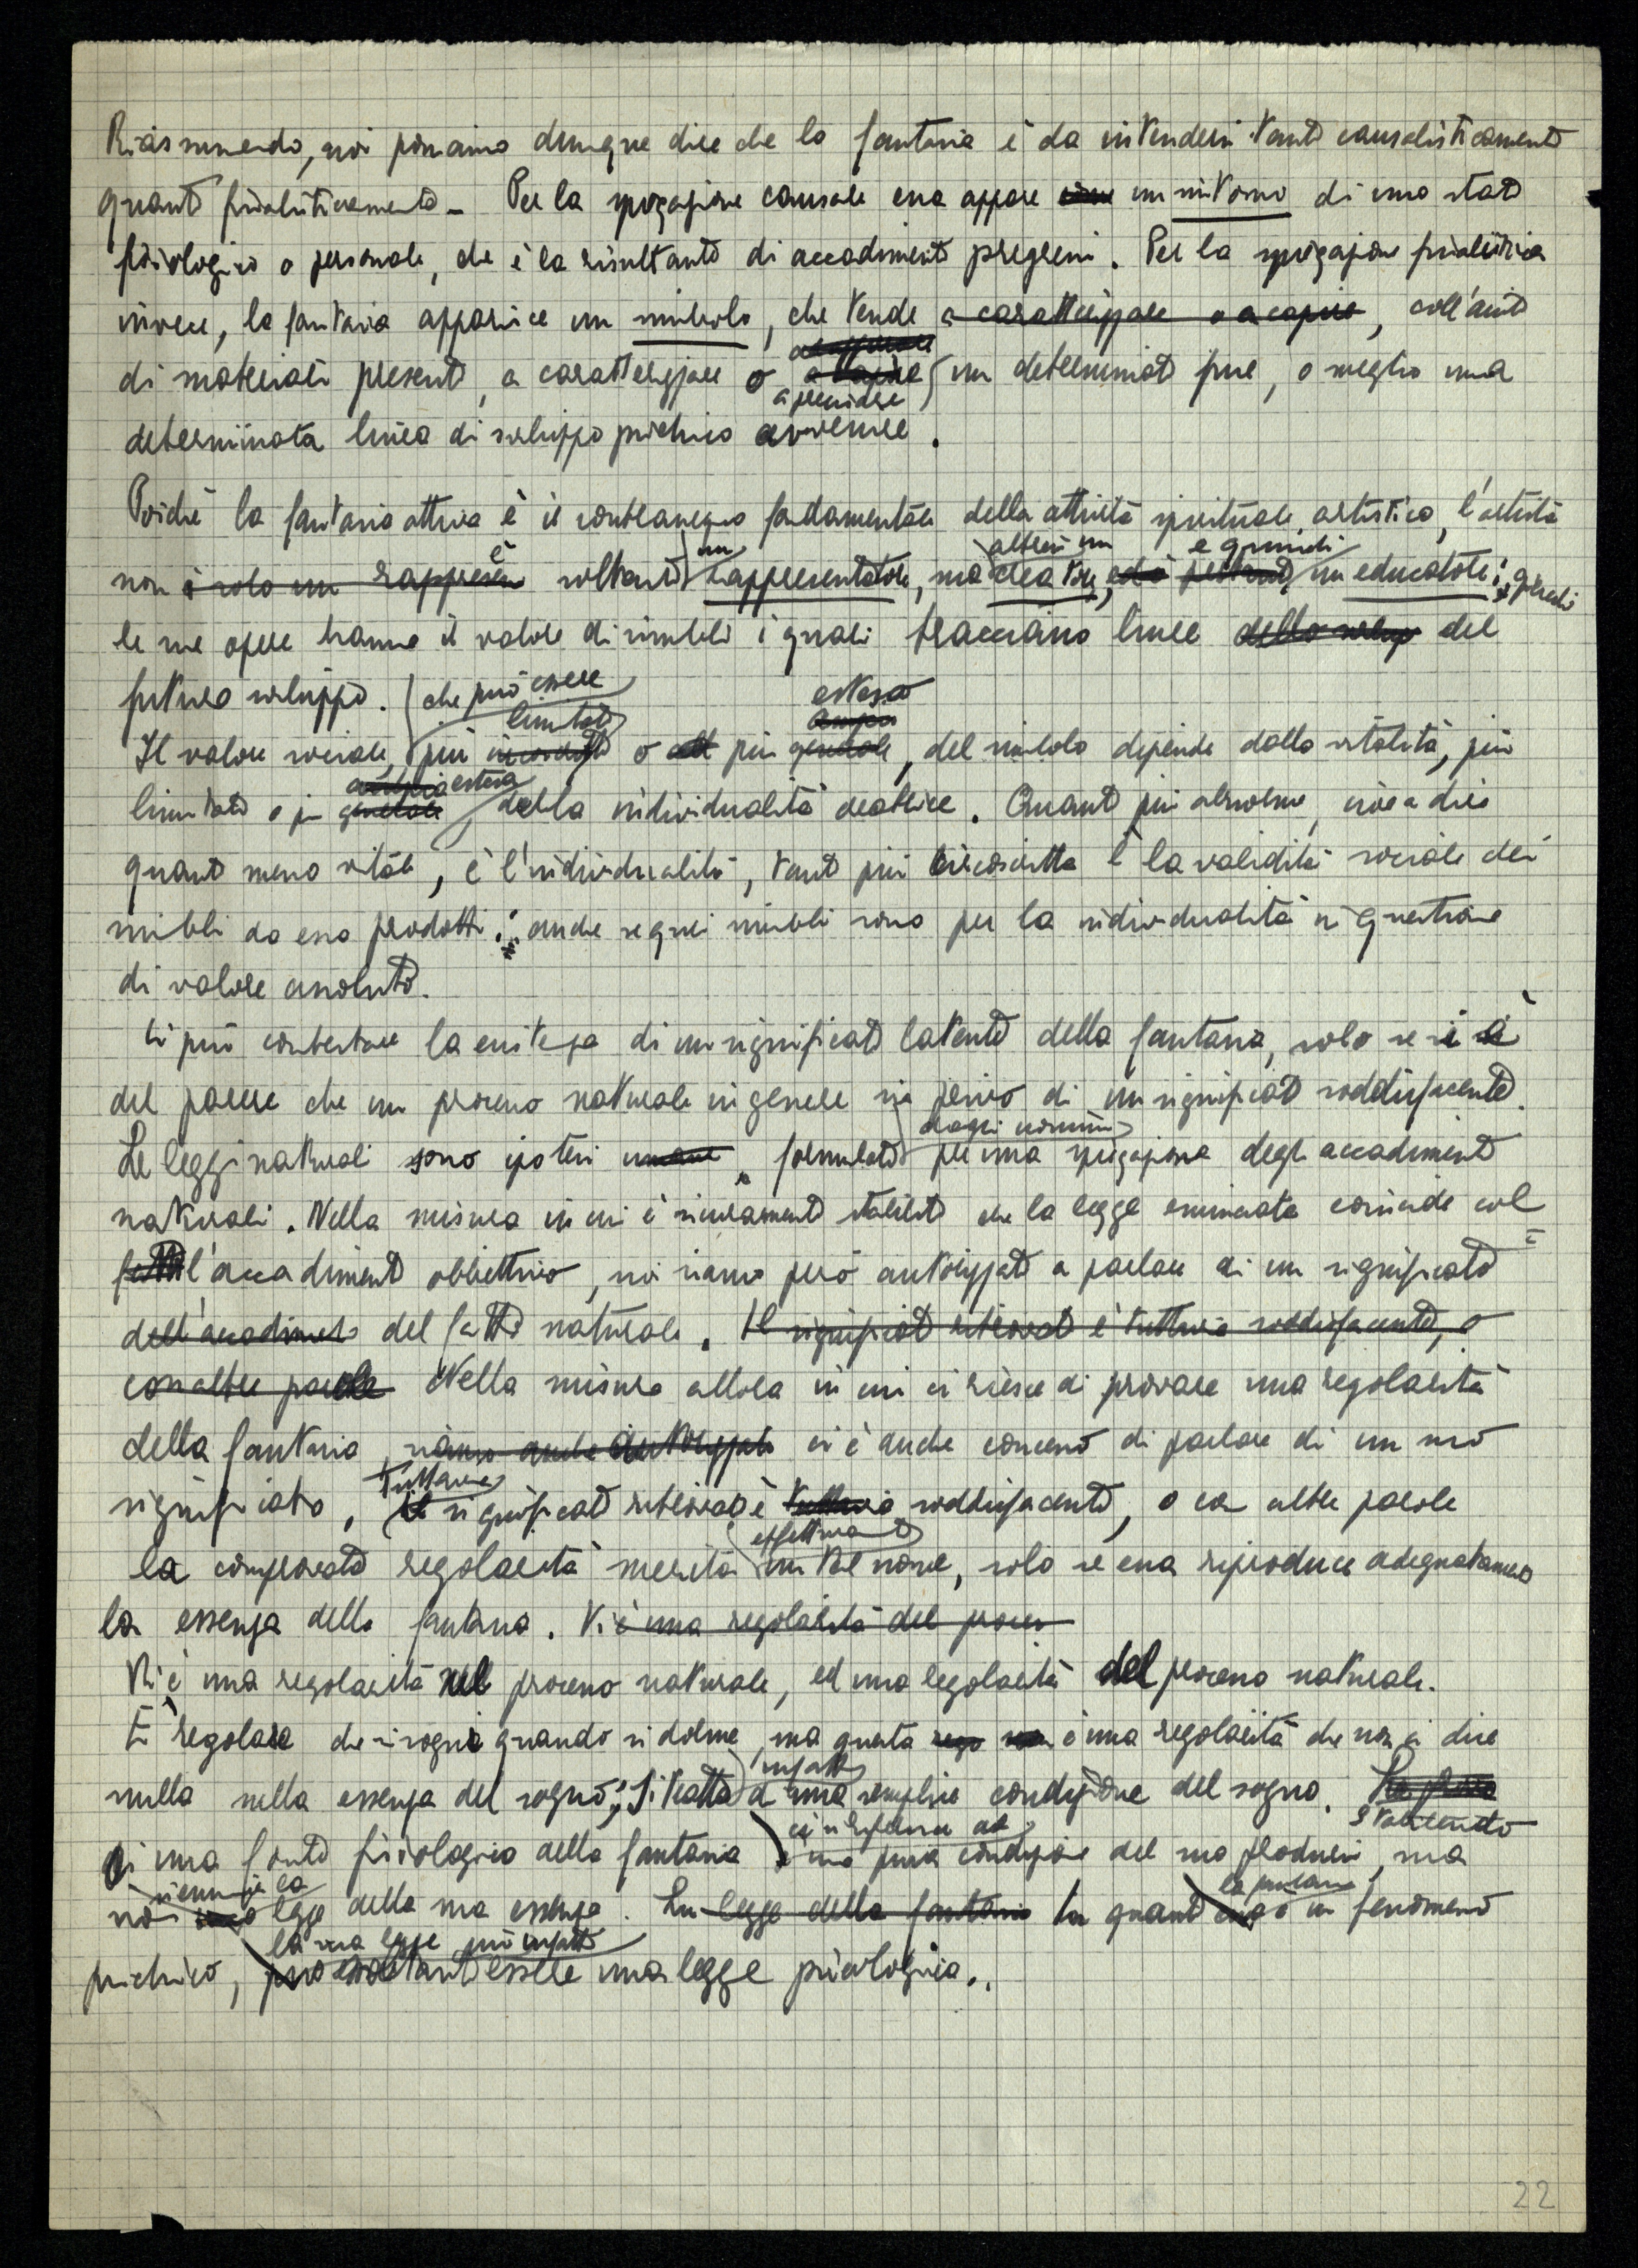 Riassumendo, noi possiamo dunque dire che la fantasia è da intendersi tanto causalisticamente
quanto finalisticamente – Per la spiegazione causale essa appare un sintomo di uno stato
fisiologico o personale, che è la risultante di accadimenti pregressi. Per la spiegazione finalistica
invece, la fantasia apparisce un simbolo, che tende a caratterizzare o a capire, coll'aiuto
di materiali presenti, a caratterizzare o a precidere un determinato fine, o meglio una
determinata linea di sviluppo psichico avvenire.
Poichè la fantasia attiva è il contrassegno fondamentale della attività spirituale artistica, l'artista
non è soltanto un rappresentatore, ma altresì un creatore, e quindi un educatore; perchè
le sue opere hanno il valore di simboli i quali tracciano linee dello svilup del
futuro sviluppo.
Il valore sociale, che può essere più limitato o più esteso, del simbolo dipende dalla vitalità, più
limitata o più estesa, della individualità creatrice. Quanto più abnorme, cioè a dire
quanto meno vitale, è l'individualità, tanto più circoscritta è la validità sociale dei
simboli da essa prodotti; anche se quei simboli sono per la individualità in questione
di valore assoluto.
Si può contestare la esistenza di un significato latente della fantasia, solo se si è
del parere che un processo naturale in genere sia privo di un significato soddisfacente.
Le leggi naturali sono ipotesi umane formulate dagli uomini per una spiegazione degli accadimenti
naturali. Nella misura in cui è sicuramente stabilito che la legge enunciata coincide col
l'accadimento obbiettivo, noi siamo però autorizzati a parlare di un significato
dell'accadimento del fatto naturale. Il significato ritrovato è tuttavia soddisfacente, o
con altre parole Nella misura allora in cui ci riesce di provare una regolarità
della fantasia, siamo anche autorizzati ci è anche concesso di parlare di un suo
significato, Tuttavia il significato ritrovato è tuttavia soddisfacente, o con altre parole
la comprovata regolarità merita effettivamente un tal nome, solo se essa riproduce adeguatamente
la essenza della fantasia. Vi è una regolarità del proces
Vi è una regolarità nel processo naturale, ed una regolarità del processo naturale.
È regolare che si sogni quando si dorme, ma questa è una regolarità che non ci dice
nulla sulla essenza del sogno; Si tratta infatti di una semplice condizione del sogno. Stabilendo
di una fonte fisiologica della fantasia ci si riferisce ad una pura condizione del suo prodursi, ma
non si enunzia la legge della sua essenza. La legge della fantasia In quanto la fantasia è un fenomeno
psichico, la sua legge può infatti soltanto essere una legge psicologica.
22